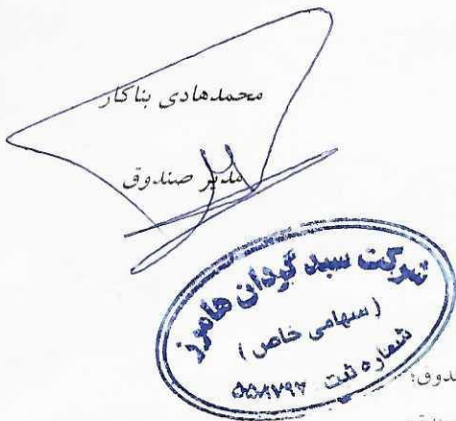 محمدهادی بناکار
مدیر صندوق
شرکت سبد گردان هامرز
(سهامی خاص)
شماره ثبت ۵۵۸۷۹۷